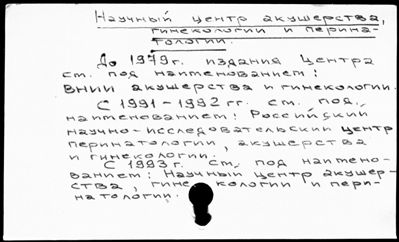 Научный центр акушерства,
гинекологии и перина-
тологии.
До 1979г. издания Центра
см. под наименованием:
ВНИИ акушерства и гинекологии.
С 1991-1992 гг. см. под
наименованием: Российский
научно-исследовательский центр
перинатологии, акушерства
и гинекологии.
С 1993г. см. под наимено-
ванием: Научный центр акушер-
ства, гинекологии и пери-
натологии.